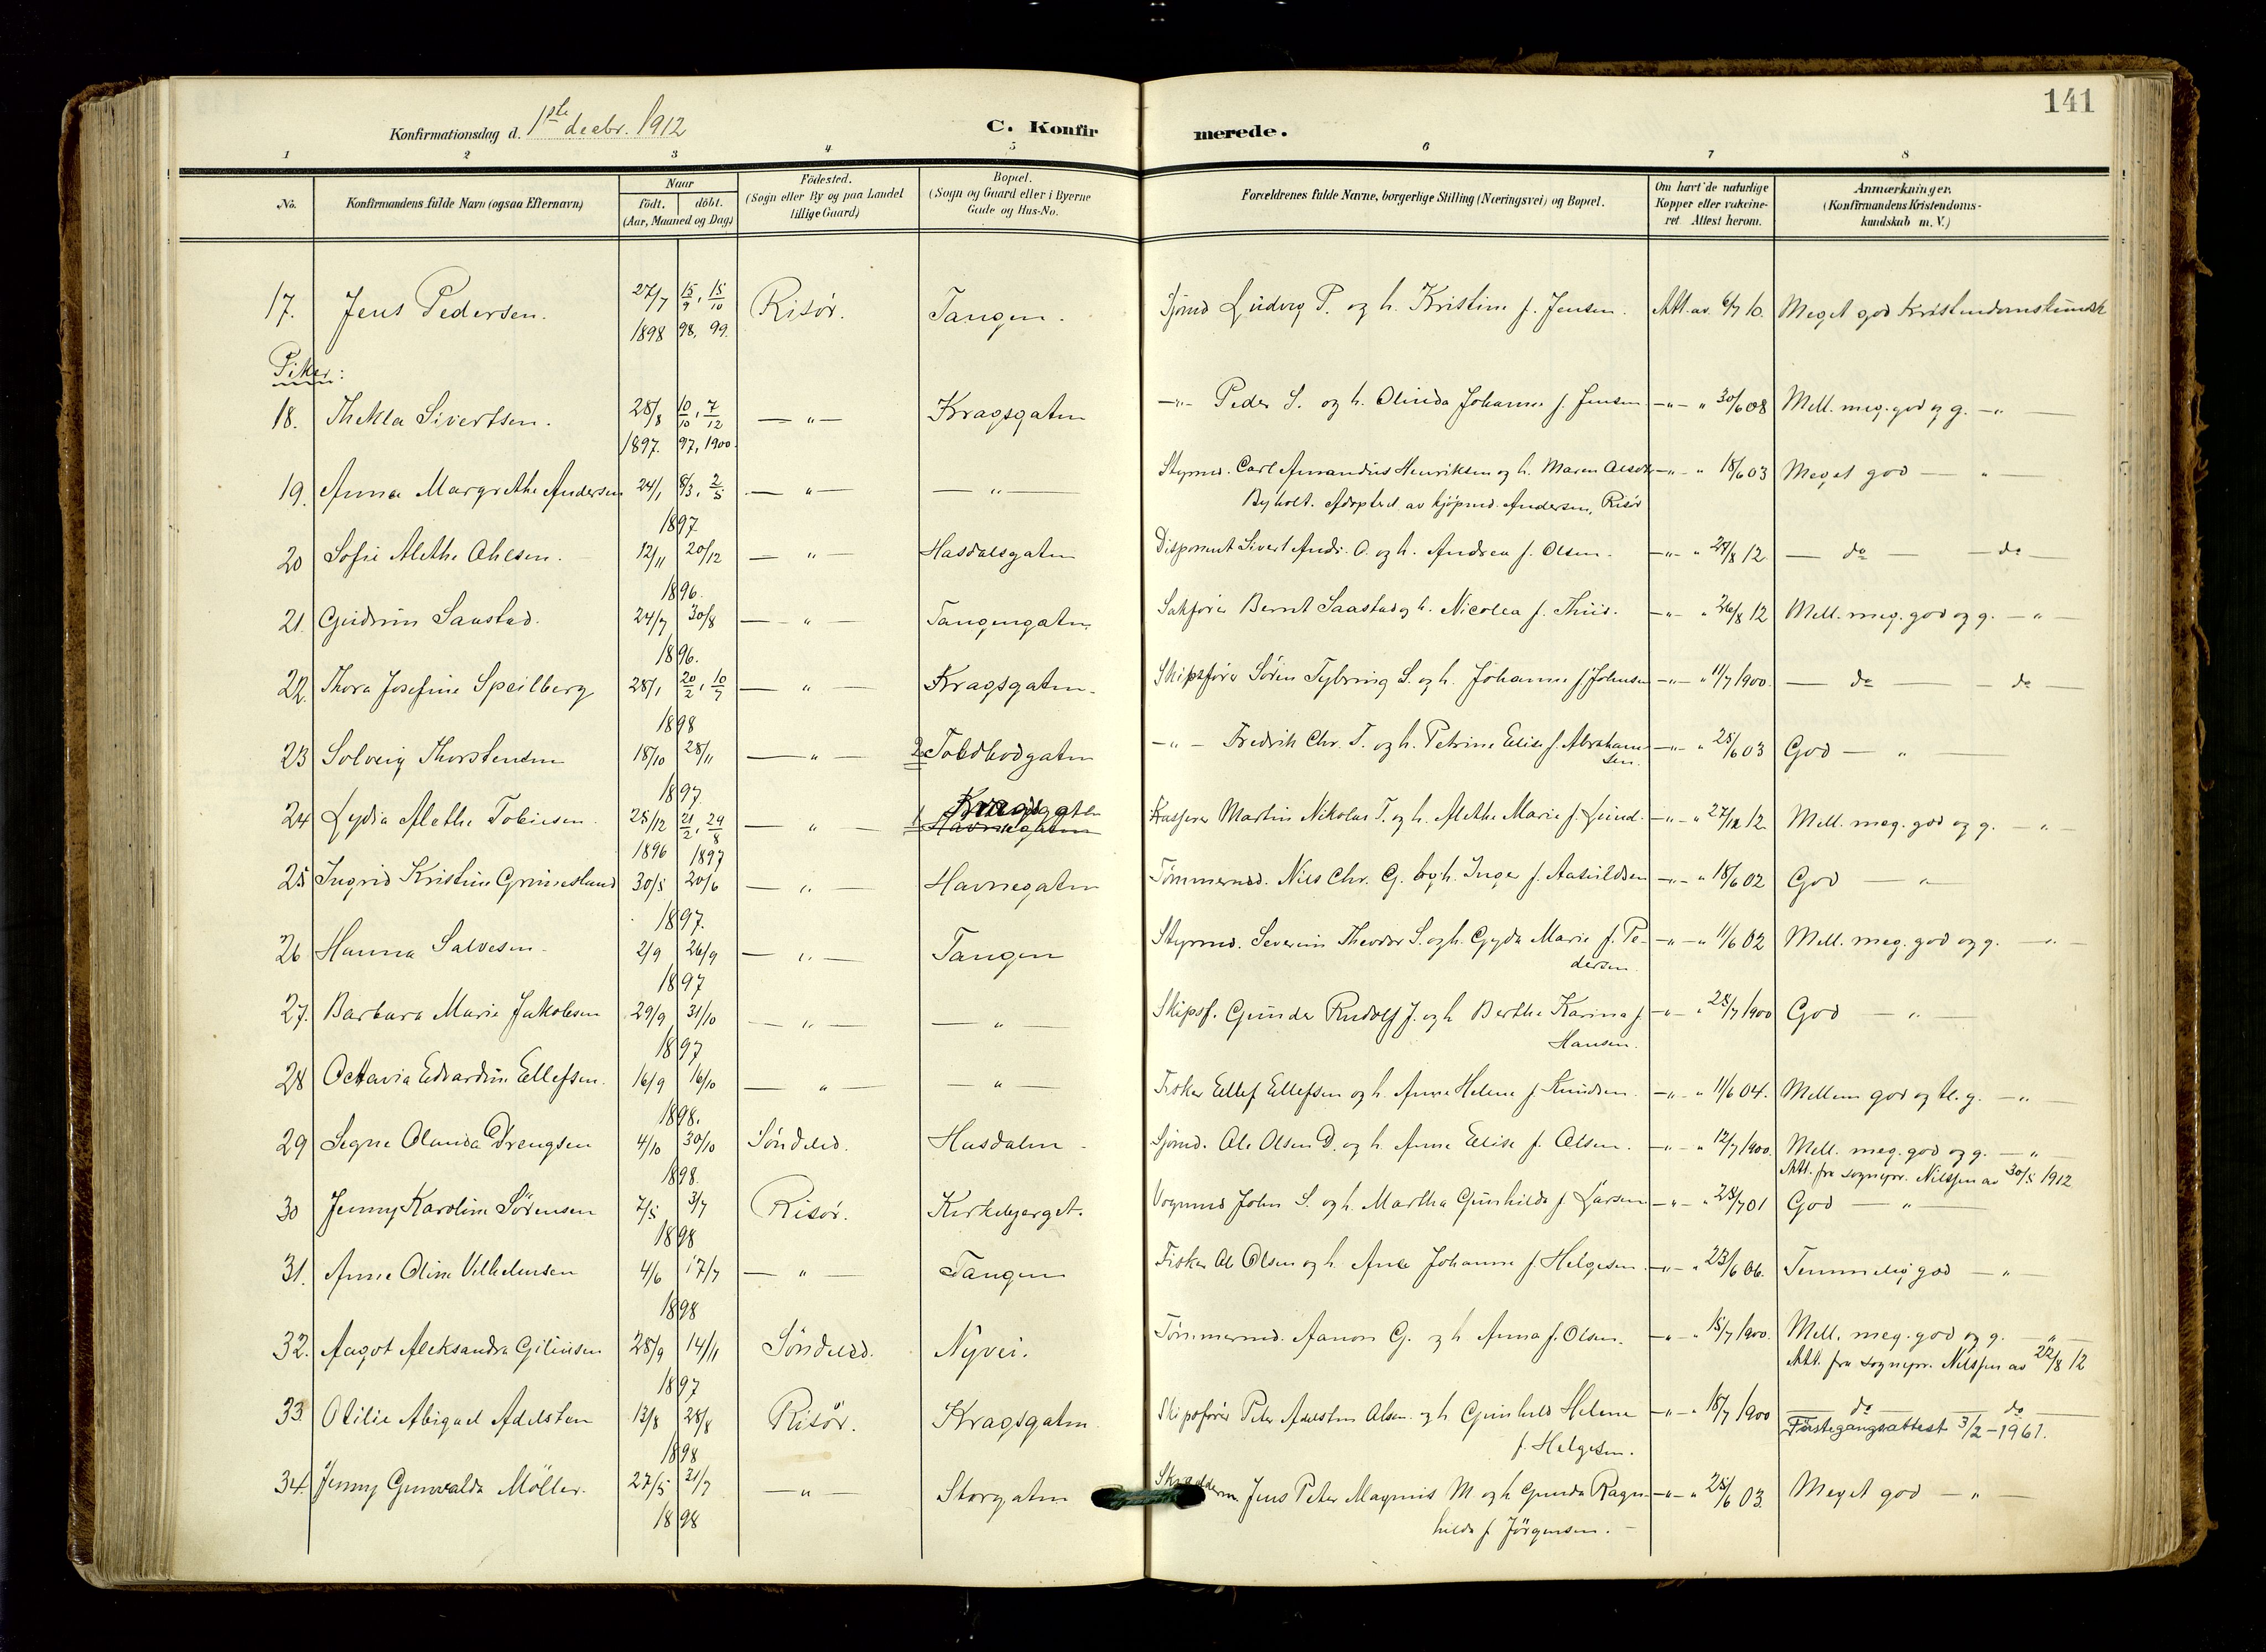 141
Konfirmationsdag d. 1ste decbr. 1912
C. Konfirmerede.
1 2 3 4 5 6 7 8
No. Konfirmandens fulde Navn (ogsaa Efternavn) Naar født. døbt. (Aar, Maaned og Dag) Fødested. (Sogn eller By og paa Landet tillige Gaard) Bopæl. (Sogn og Gaard eller i Byerne Gade og Hus-No. Forældrenes fulde Navne, borgerlige Stilling (Næringsvei) og Bopæl. Om havt de naturlige Kopper eller vakcineret Attest herom. Anmærkninger. (Konfirmandens Kristendomskundskab m. V.)
17. Jens Pedersen. 27/7 1898 15/9 98, 15/10 99. Risør. Tangen. Sjømd Ludvig P. og h. Kristine f. Jensen. Att. av 6/7 10. Meget god Kristendomskundsk
Piker:
18. Thekla Sivertsen. 28/8 1897. 10/10 97, 7/12 1900. — " — Kragsgaten —"— Peder S. og h. Olinda Johanne f. Jensen —"— " 30/6 08 Mell. meg. god og g. — " —
19. Anna Margrethe Andersen 24/1 8/3, 2/5 1897 — " — — " — Styrmd. Carl Amandus Henriksen og h. Maren —"— " 18/6 03 Meget god — " —
Byholt. Adopteret av kjøpmd. Andersen, Risør
20 Sofie Alethe Ohlsen. 12/11 20/12 1896. — " — Hasdalsgaten Disponent Sivert Andr. O. og h. Andrea f. Olsen. —"— " 27/8 12. — do — — do —
21. Gudrun Saastad. 24/7 30/8 1896. — " — Tangengaten Sakfører Bernt Saastad og h. Nicolea f. Thiis. —"— " 26/8 12 Mell. meg. god og g. — " —
22. Thora Josefine Speilberg 28/1 20/2, 10/7 1898 — " — Kragsgaten. Skipsfører Søren Tybring S. og h. Johanne f. Johnsen —"— " 11/7 1900. — do — — do —
23 Solveig Thorstensen 18/10 28/11 1897. — " — 2 Toldbodgaten —"— Fredrik Chr. T. og h. Petrine Elise f. Abrahamsen. —"— " 25/6 03 God — " —
24 Lydia Alethe Tobiesen. 28/12 1896 21/2, 29/8 1897 — " — 1 Kragsgaten Havnegaten Kasserer Martin Nikolai T. og h. Alethe Marie f. Lund. —"— " 27/12 12 Mell. meg. god og g. — " —
25 Ingrid Kristine Grimesland 30/5 20/6 1897. — " — Havnegaten Tømmermd. Nils Chr. G. og h. Inger f. Aasvildsen —"— " 18/6 02 God — " —
26 Hanna Salvesen. 2/9 26/9 1897 — " — Tangen Styrmd. Severin Theodor S. og h. Gyda Marie f. Pedersen. —"— " 11/6 02 Mell. meg. god og g. — " —
27. Barbara Marie Jakobsen 29/9 31/10 1897 — " — — " — Skipsf. Gunder Rudolf J. og h Berthe Karina f. Hansen. —"— " 28/7 1900 God — " —
28 Octavia Edvardine Ellefsen. 16/9 16/10 1898. — " — — " — Fisker Ellef Ellefsen og h. Anne Helene f. Knudsen. —"— " 11/6 04. Mellem god og tl. g. — " —
29 Signe Olamida Drengsen 4/10 30/10 1898. Søndeled. Hasdalen Sjømd. Ole Olsen D. og h. Anne Elise f. Olsen. —"— " 12/7 1900. Mell. meg. god og g. — " —
Att. fra sognepr. Nilssen av 30/5 1912
30 Jenny Karoline Sørensen 7/5 3/7 1898 Risør. Kirkebjerget. Vognmd John S. og h. Martha Gunhilda f. Larsen —"— " 28/7 01 God — " —
31. Anne Oline Vilhelmsen 4/6 17/7 1898 — " — Tangen Fisker Ol Olsen og h. Ane Johanne f. Helgesen. —"— " 23/6 06. Temmelig god — " —
32. Aagot Aleksandra Gilinsen 28/9 14/11 1897 Søndeled. Nyvei. Tømmermd. Aanon G. og h Anna f. Olsen. —"— " 15/7 1900. Mell. meg. god og g. — " —
Att. fra sognepr. Nilssen av 22/8 12
33 Otilie Abigael Adelsten 13/8 28/8 1898 Risør. Kragsgaten Skipsfører Peter Adelsten Olsen og h Gunhild Helene f. Helgesen. —"— " 18/7 1900 do do
Førstegangsattest 3/2-1961.
34. Jenny Gunvalda Møller. 27/5 31/7 1898 — " — Storgaten Skrædderm. Jens Peter Magnus M og h Gunda Ragnhilda f Jørgensen. — —"— " 25/6 03. Meget god — " —